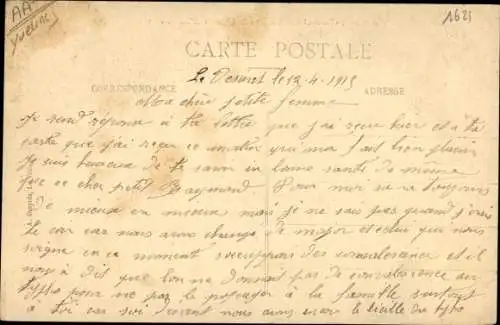 AA
Yvelines
1621
CARTE POSTALE
CORRESPONDANCE
ADRESSE
Le Vesinet le 12-4-1915
Ma chère petite femme
Je rend réponse a ta lettre que j'ai reçu hier et a ta
carte que j'ai reçu ce matin qui m'a fait bien plaisir
Je suis heureux de te savoir en bonne santé de même
que ce cher petit Raymond. Pour moi sa va toujours
de mieux en mieux mais je ne sai pas quand j'irai
te car nous avons changé de major et celui qui nous
soigne en ce moment s'occupe des convalescence et il
nous a dit que l'on ne donnait pas de convalescence au
typho pour ne pas le propager à la famille surtout
a toi car soi disant nous avons le typho